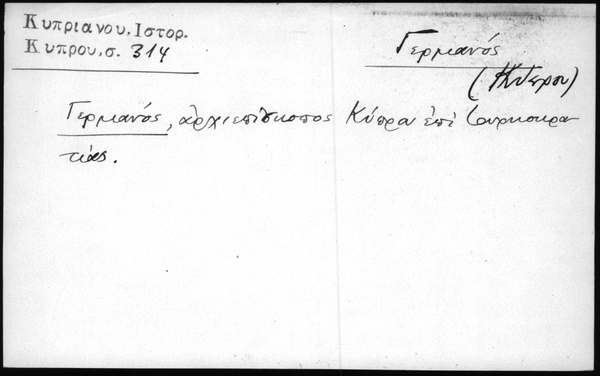 Κυπριανου, Ιστορ.
Κυπρου, σ. 314
Γερμανός
(Κύπρου)
Γερμανός, ἀρχιεπίσκοπος Κύπρου ἐπί τουρκοκρα-
τίας.